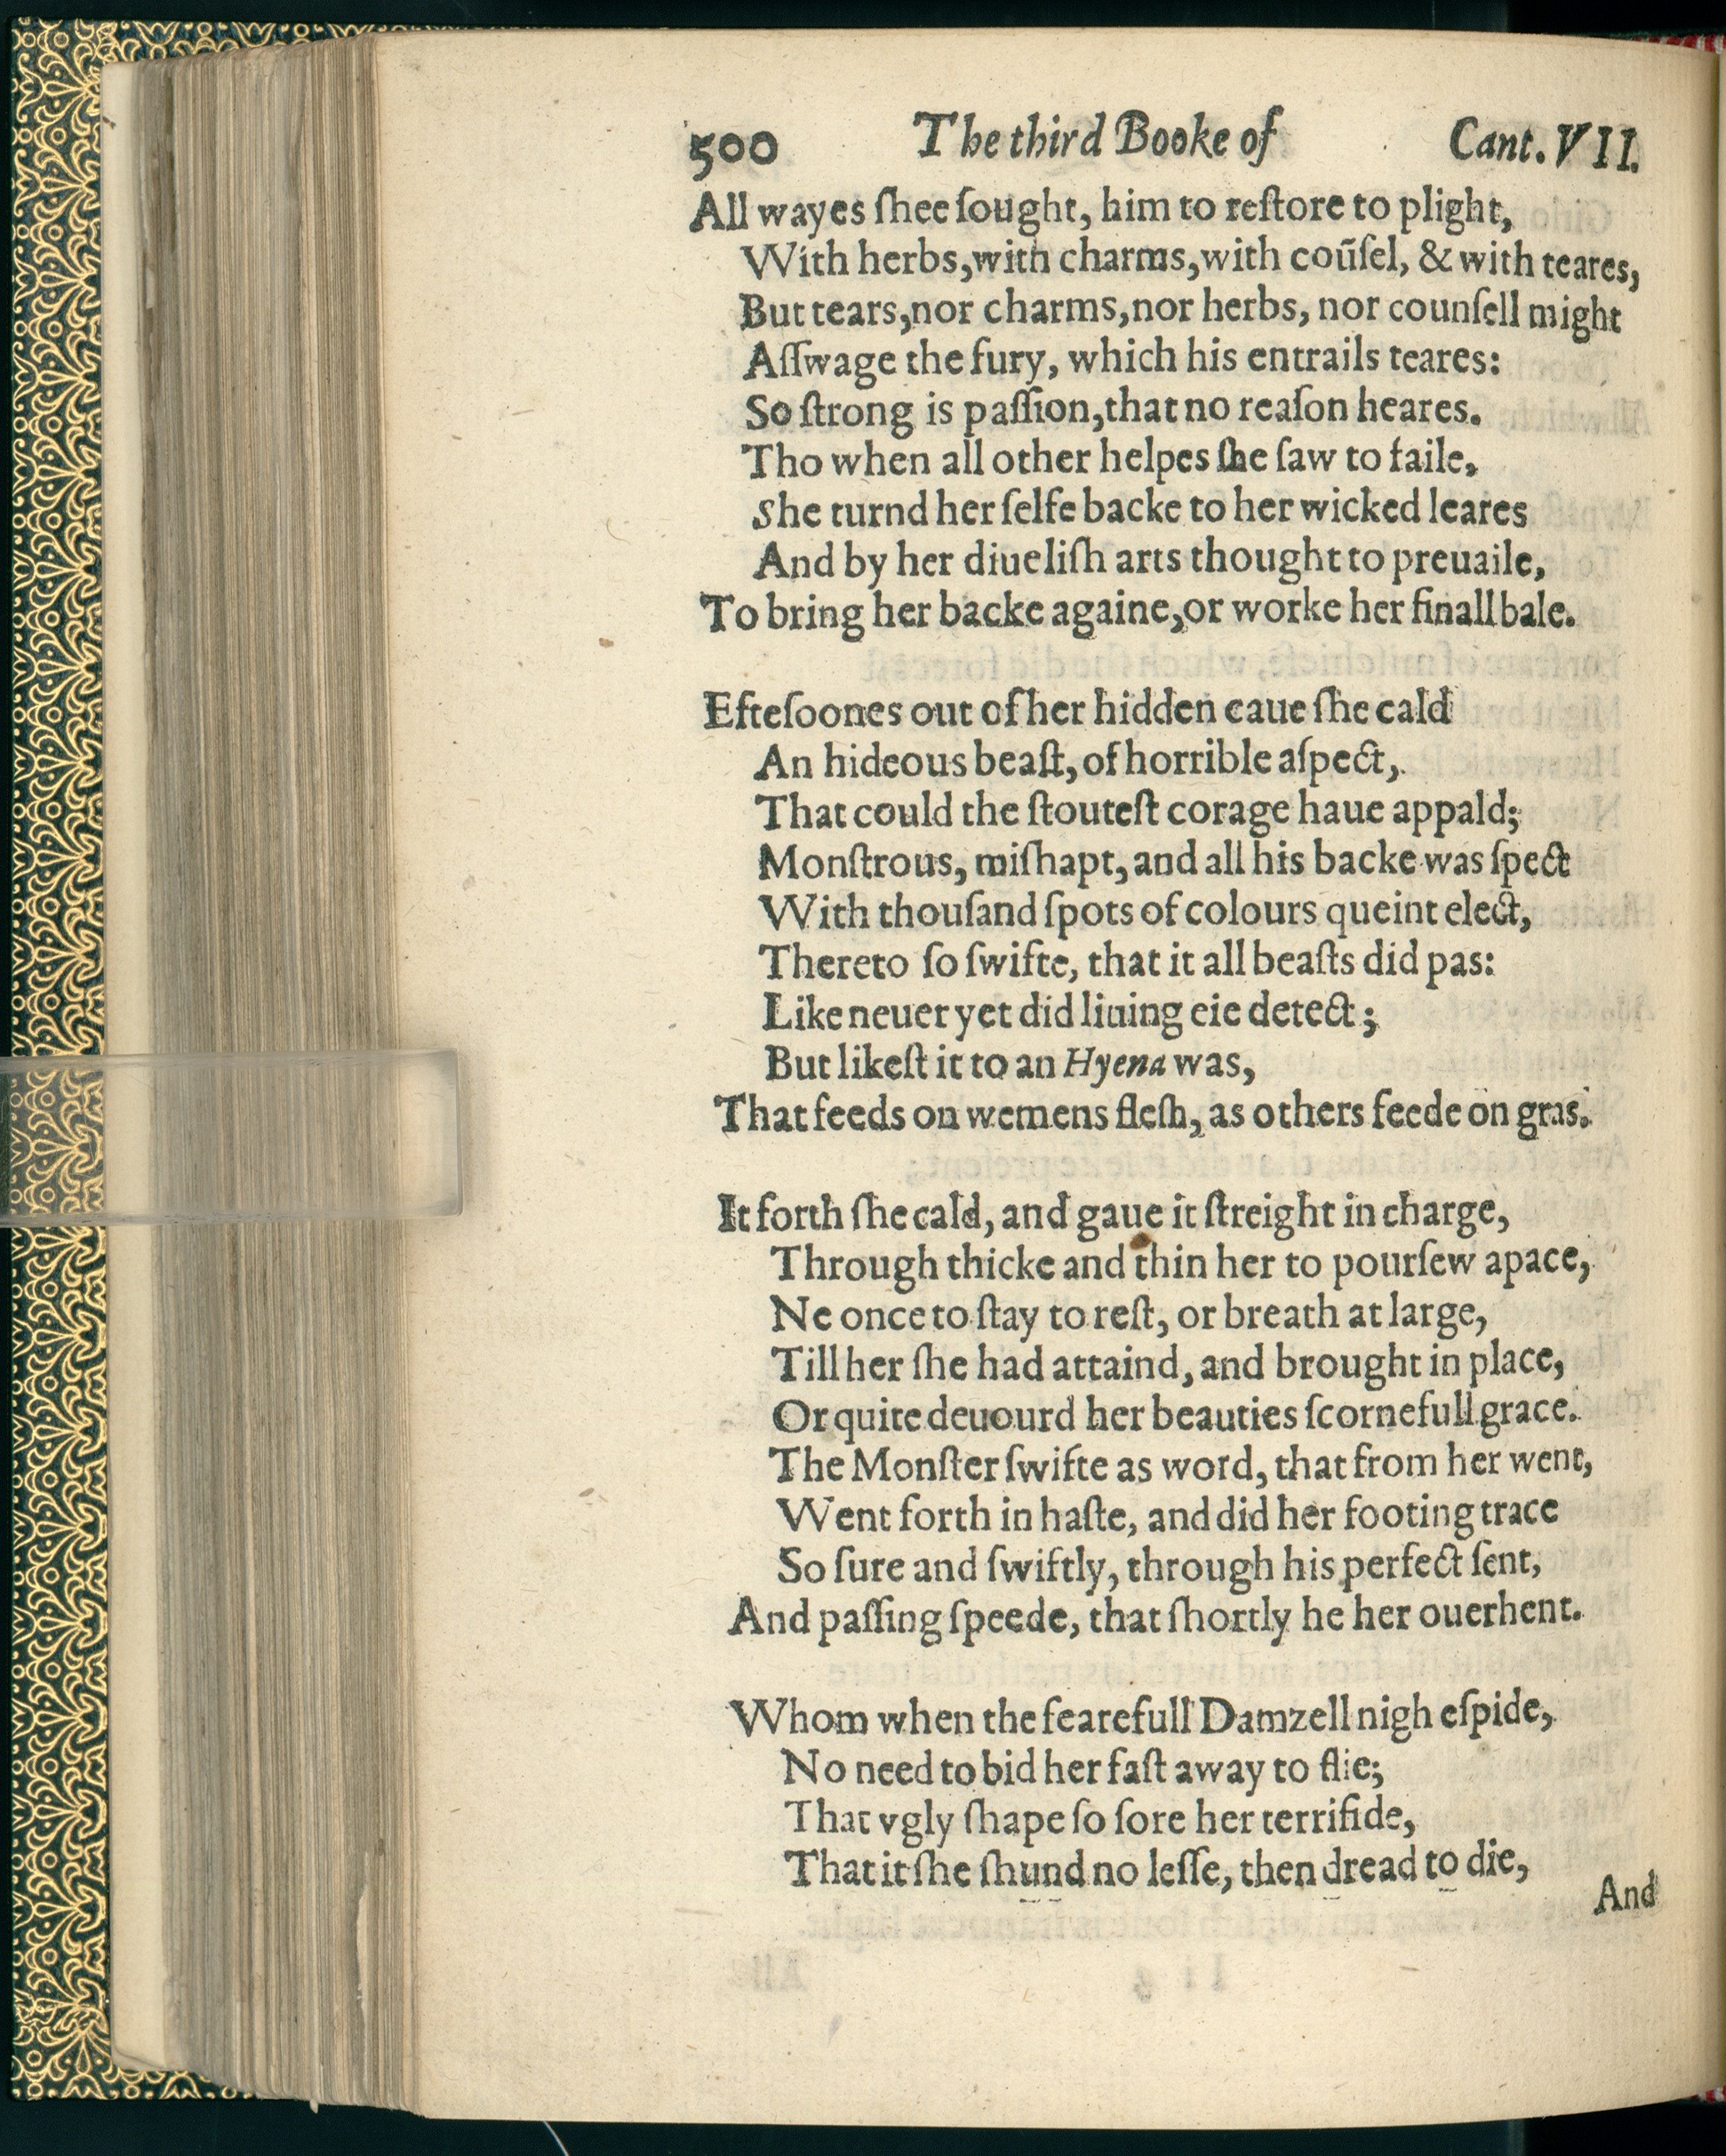 500 The third Booke of Cant. VII.
All wayes ſhee ſought, him to reſtore to plight,
With herbs, with charms, with coũſel, & with teares,
But tears, nor charms, nor herbs, nor counſell might
Aſſwage the fury, which his entrails teares:
So ſtrong is paſſion, that no reaſon heares.
Tho when all other helpes ſhe ſaw to faile,
She turnd her ſelfe backe to her wicked leares
And by her diueliſh arts thought to preuaile,
To bring her backe againe, or worke her finall bale.
Efteſoones out of her hidden caue ſhe cald
An hideous beaſt, of horrible aſpect,
That could the ſtouteſt corage haue appald;
Monſtrous, miſhapt, and all his backe was ſpect
With thouſand ſpots of colours queint elect,
Thereto ſo ſwifte, that it all beaſts did pas:
Like neuer yet did liuing eie detect;
But likeſt it to an Hyena was,
That feeds on wemens fleſh, as others feede on gras.
It forth ſhe cald, and gaue it ſtreight in charge,
Through thicke and thin her to pourſew apace,
Ne once to ſtay to reſt, or breath at large,
Till her ſhe had attaind, and brought in place,
Or quite deuourd her beauties ſcornefull grace.
The Monſter ſwifte as word, that from her went,
Went forth in haſte, and did her footing trace
So ſure and ſwiftly, through his perfect ſent,
And paſſing ſpeede, that ſhortly he her ouerhent.
Whom when the fearefull Damzell nigh eſpide,
No need to bid her faſt away to flie;
That vgly ſhape ſo ſore her terrifide,
That it ſhe ſhund no leſſe, then dread to die,
And